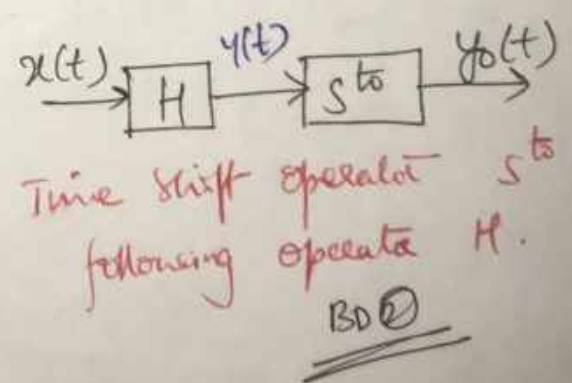 x(t) y(t) y0(t)
H S^to
Time shift operator S^to
following operator H.
BD②